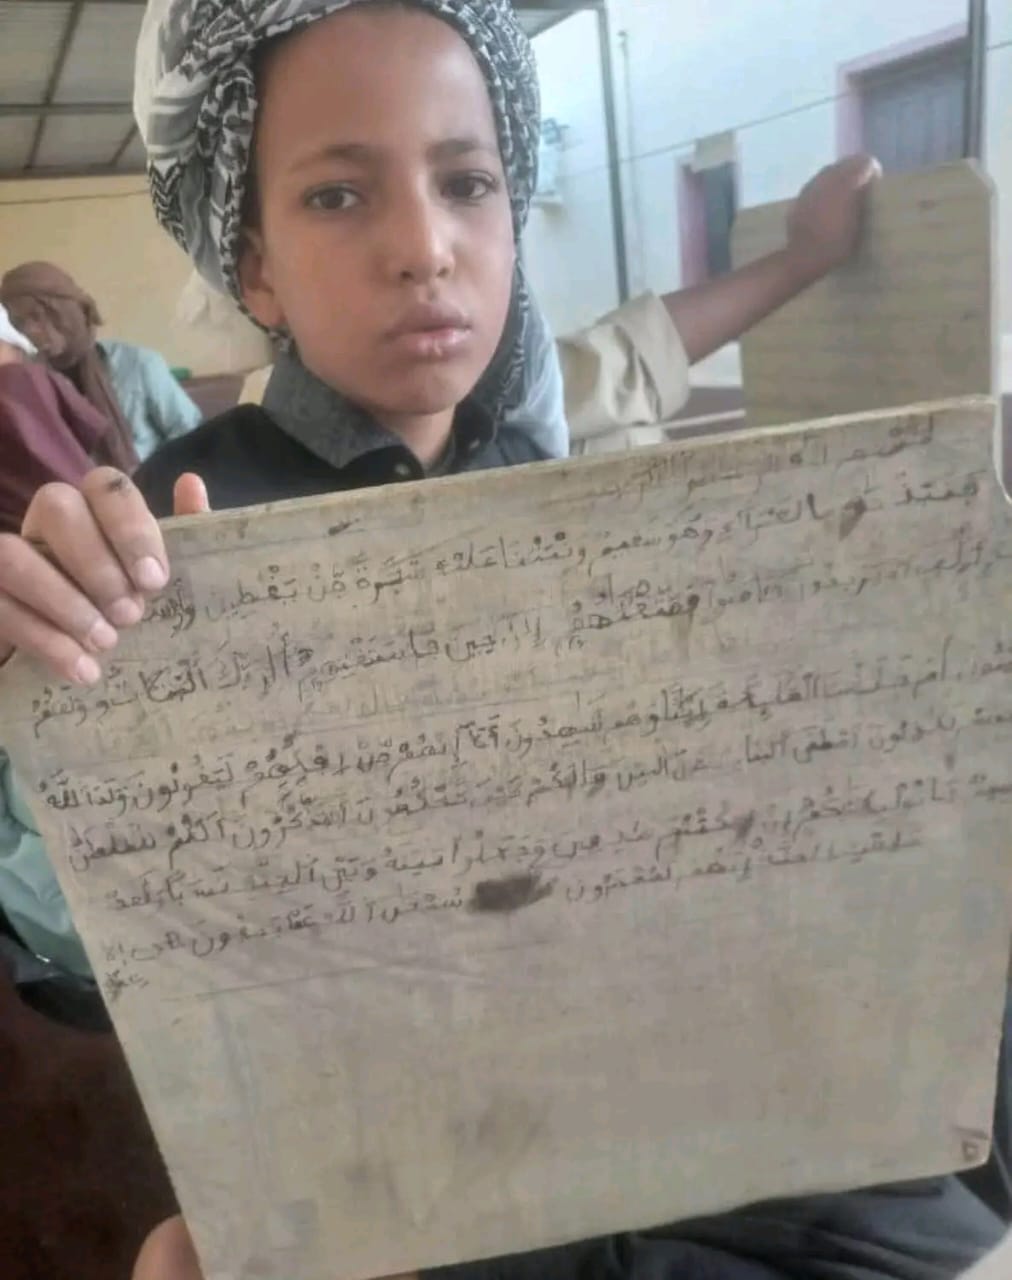 بسم الله الرحمن الرحيم
فنبذنه بالعراء وهو سقيم وأنبتنا عليه شجرة من يقطين
أو يزيدون فمتعنهم إلى حين فاستفتهم ألربك البنات ولهم
أم خلقنا الملئكة إنثا وهم شهدون ألا إنهم من إفكهم ليقولون ولد الله
لكذبون أصطفى البنات على البنين مالكم كيف تحكمون تذكرون أم لكم سلطن
فأتوا بكتبكم إن كنتم صدقين وجعلوا بينه وبين الجنة نسبا ولقد
علمت الجنة إنهم لمحضرون سبحن الله عما يصفون إلا